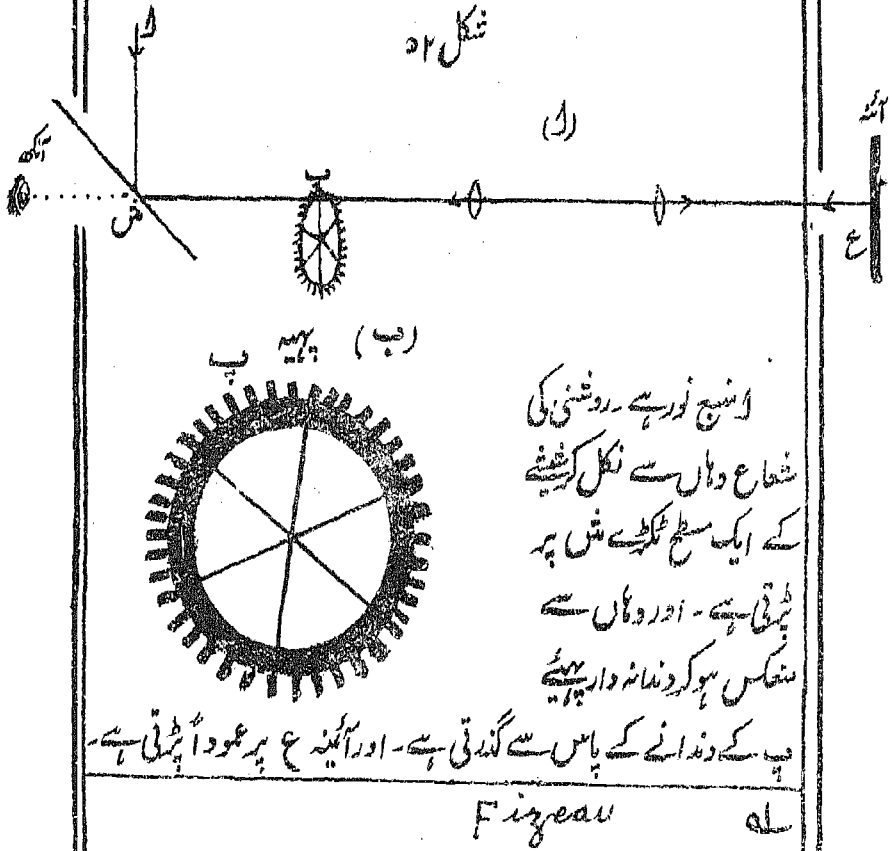 شکل ۵۲
ا
(ا)
آئنہ
آنکھ
پ
ش
ع
(ب) پہیہ پ
ا منبع نور ہے۔ روشنی کی
شعاع وہاں سے نکل کر شیشے
کے ایک مسطح ٹکڑے ش پر
پڑتی ہے۔ اور وہاں سے
منعکس ہو کر دندانہ دار پہیئے
پ کے دندانے کے پاس سے گذرتی ہے۔ اور آئینہ ع پر عموداً پڑتی ہے۔
لہ Fizeau